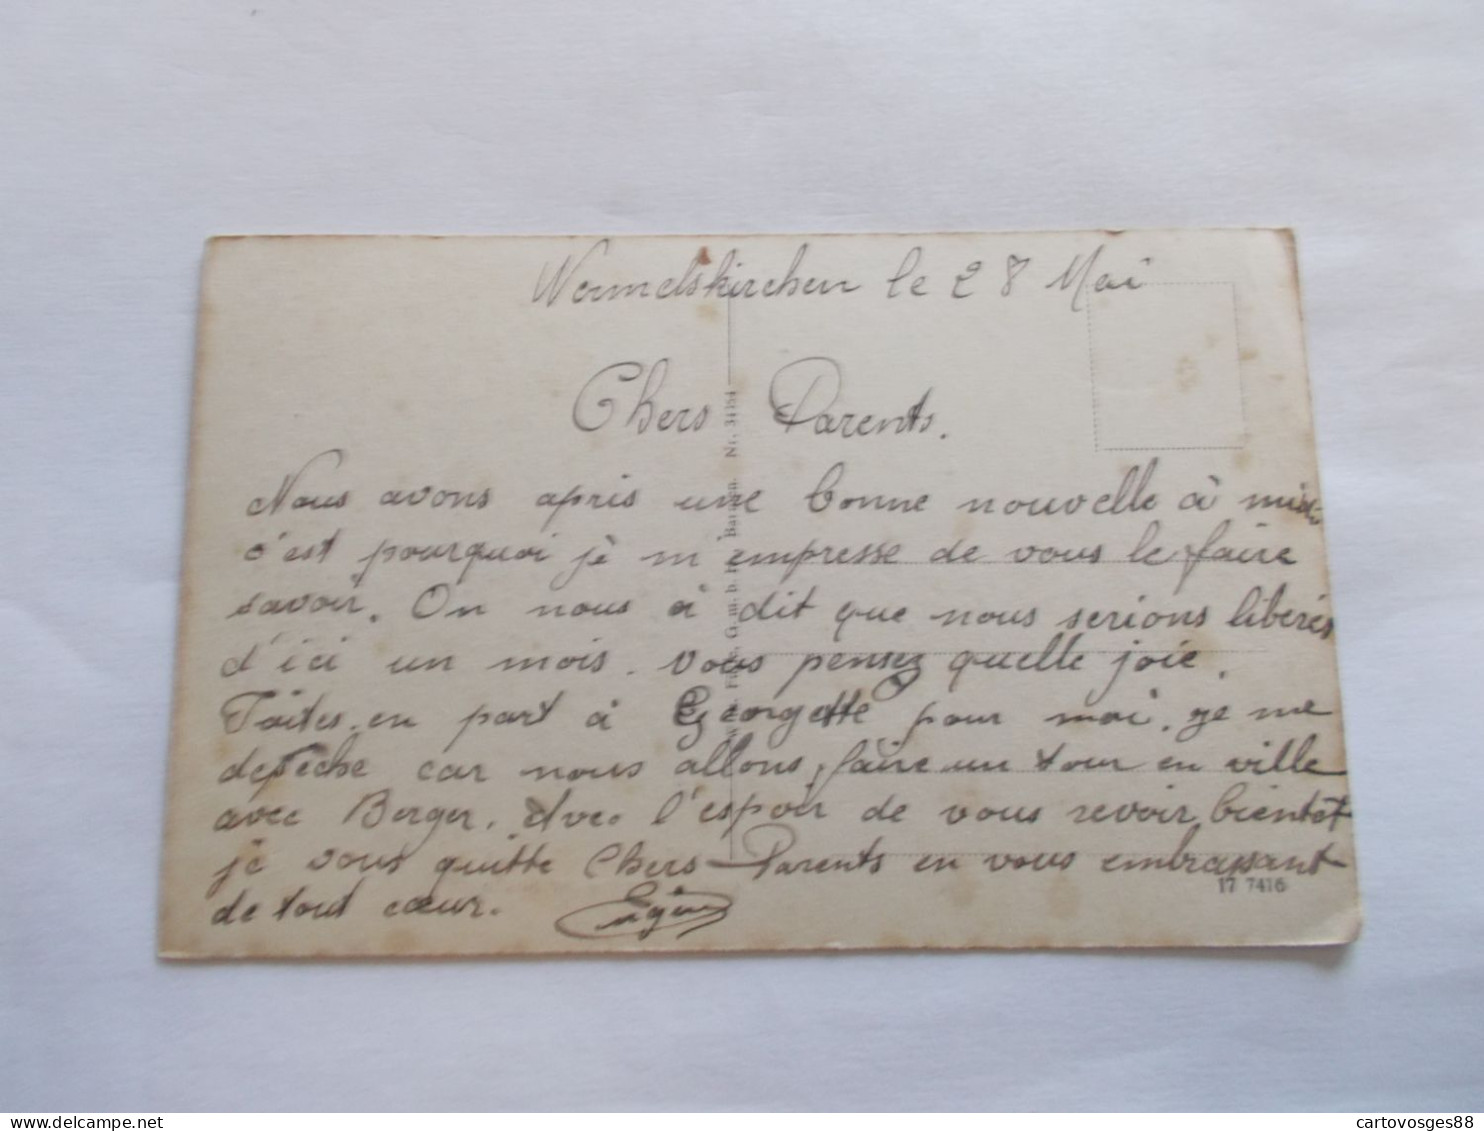 Wermelskirchen le 28 Mai
Chers Parents.
Nous avons apris une bonne nouvelle à midi
c'est pourquoi je m'empresse de vous le faire
savoir. On nous à dit que nous serions libérés
d'ici un mois. Vous pensez quelle joie.
Faites-en part à Georgette pour moi. je me
depêche car nous allons faire un tour en ville
avec Berger. Avec l'espoir de vous revoir bientot
je vous quitte Chers Parents en vous embrassant
de tout cœur.
Nr. 34354
G. m. b. H. Barmen.
17 7416
cartovosges88